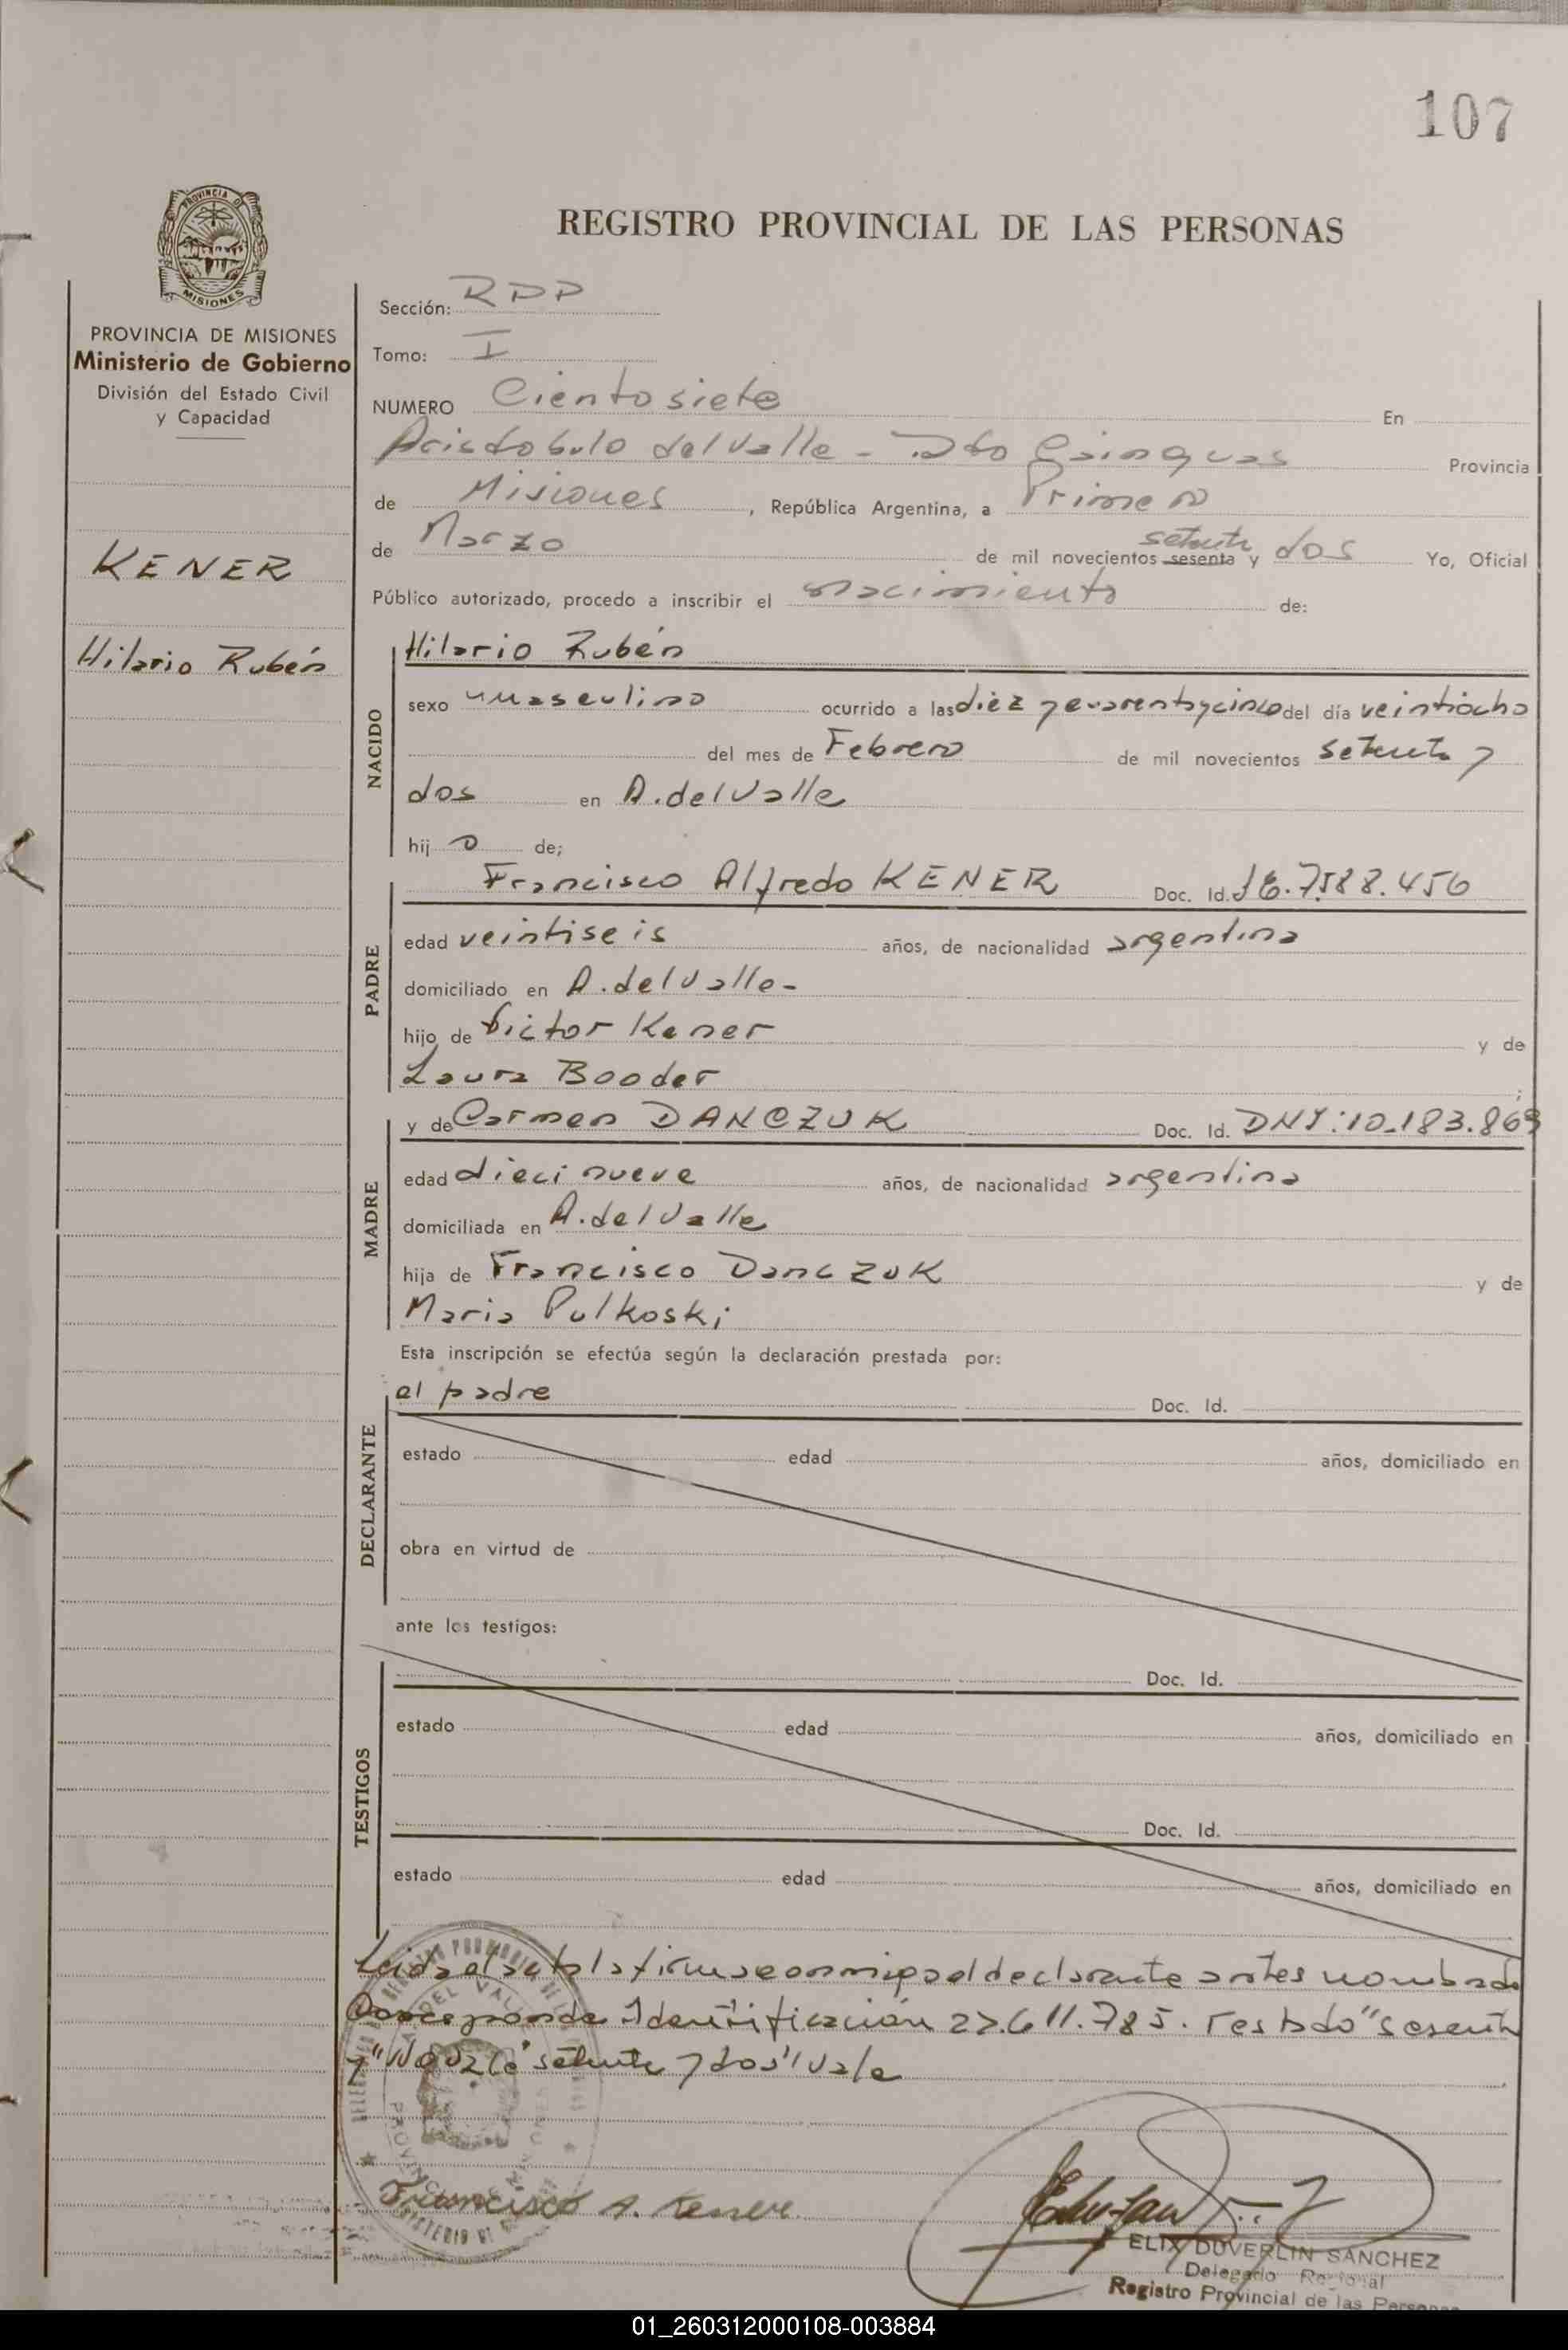 107
REGISTRO PROVINCIAL DE LAS PERSONAS
PROVINCIA DE MISIONES
Ministerio de Gobierno
División del Estado Civil
y Capacidad
KENER
Hilario Rubén
Sección: RDP
Tomo: I
NUMERO Ciento siete En
Aristobulo del Valle - Dto Gainguas Provincia
de Misiones, República Argentina, a Primero
de Marzo de mil novecientos sesenta setenta y dos Yo, Oficial
Público autorizado, procedo a inscribir el nacimiento de:
NACIDO
Hilario Rubén
sexo masculino ocurrido a las diez y cuarenta y cinco del día veintiocho
del mes de Febrero de mil novecientos setenta y
dos en A. del Valle
hijo de;
PADRE
Francisco Alfredo KENER Doc. Id. 7.588.456
edad veintiseis años, de nacionalidad argentina
domiciliado en A. del Valle-
hijo de Victor Kener y de
Laura Booder ;
MADRE
y de Carmen DANCZUK Doc. Id. DNI: 10.183.869
edad diecinueve años, de nacionalidad argentina
domiciliada en A. del Valle
hija de Francisco Danczuk y de
Maria Pulkoski
Esta inscripción se efectúa según la declaración prestada por:
DECLARANTE
el padre Doc. Id.
estado edad años, domiciliado en
obra en virtud de
ante los testigos:
TESTIGOS
Doc. Id.
estado edad años, domiciliado en
Doc. Id.
estado edad años, domiciliado en
Leida el acta la firma conmigo el declarante antes nombrado
Corresponde Identificación 22.611.785. Testado "sesenta
y" No vale "setenta y dos" vale
Francisco A. Kener
ELIX DUVERLIN SANCHEZ
Delegado Regional
Registro Provincial de las Personas
01_260312000108-003884